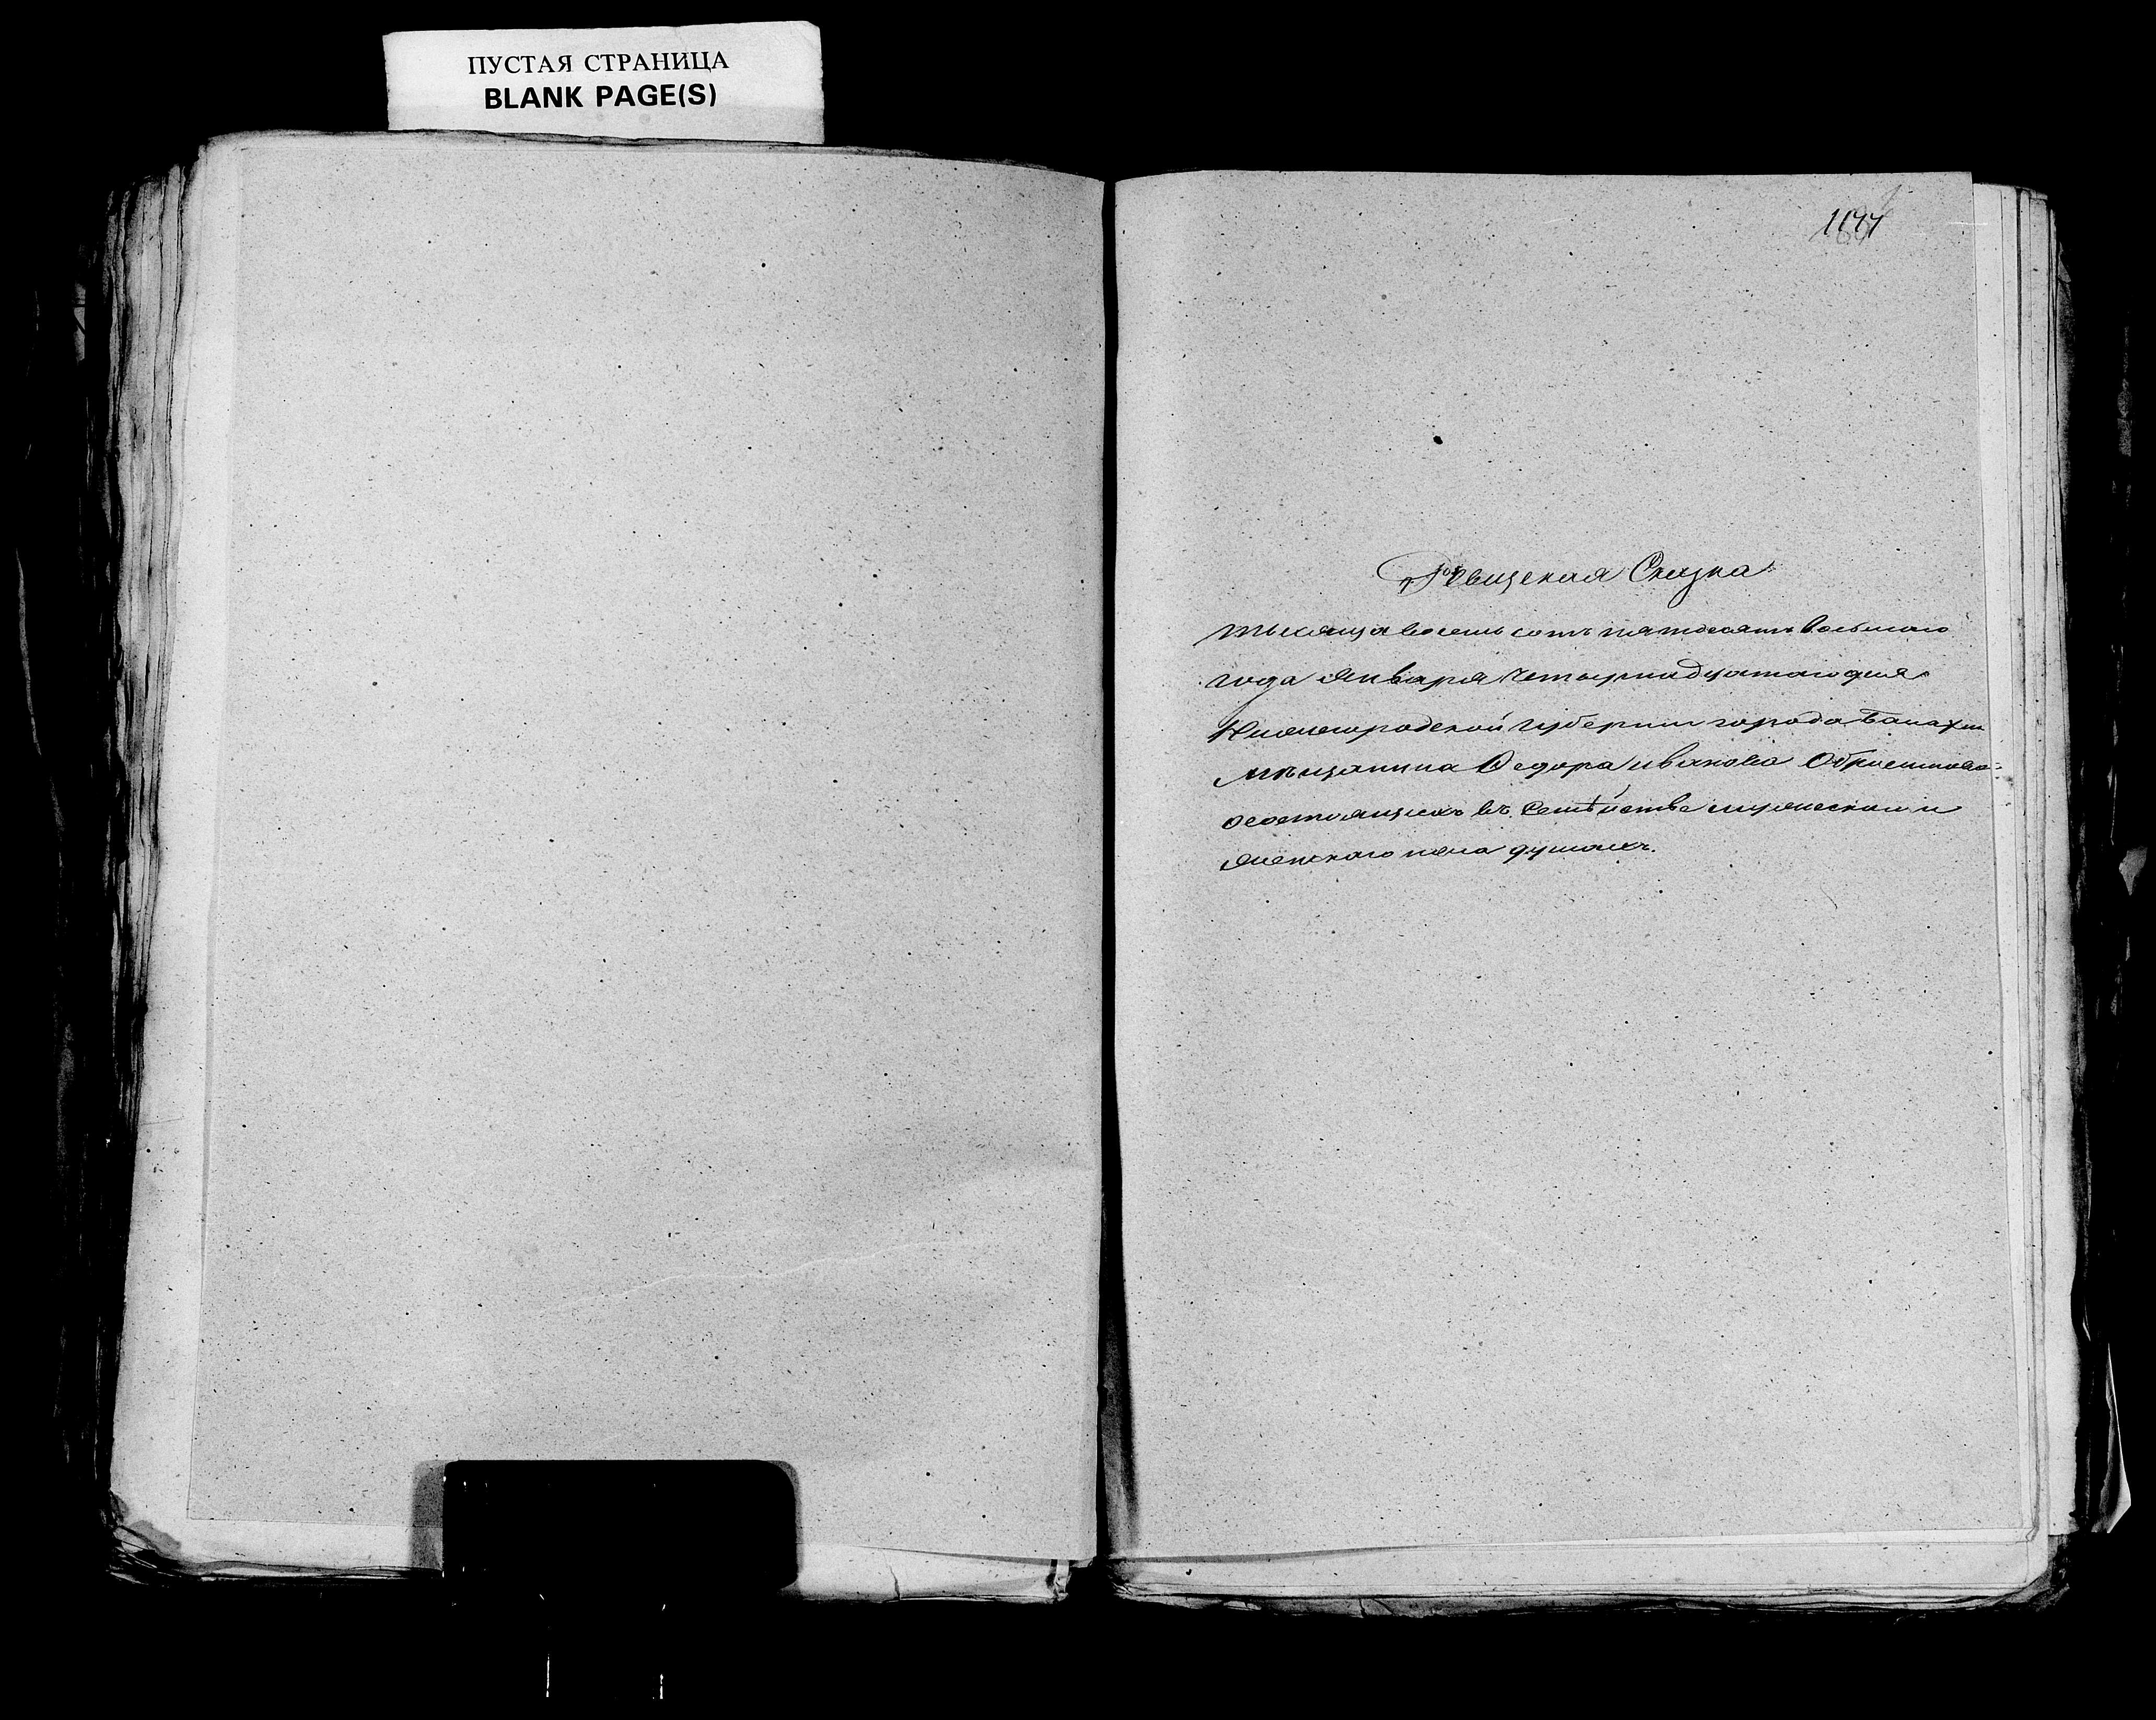 ПУСТАЯ СТРАНИЦА
BLANK PAGE(S)
Ревизская Сказка
тысяща восемь сотъ пятдесятъ восьмаго
года Января четырнадцатаго дня
Нижегородской губернии города Балахны
мѣщанина Ѳедора Иванова
осостоящихъ въ семѣйстве мужескаго и
женскаго пола душахъ.